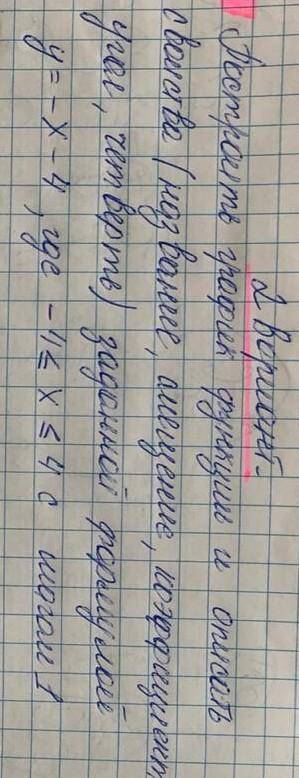 2 вариант
Построить график функции и описать
свойства (название, смещение, коэффициент
угол, четверть) заданной формулой
y = -x - 4, где -4 ≤ x ≤ 4 с шагом 1